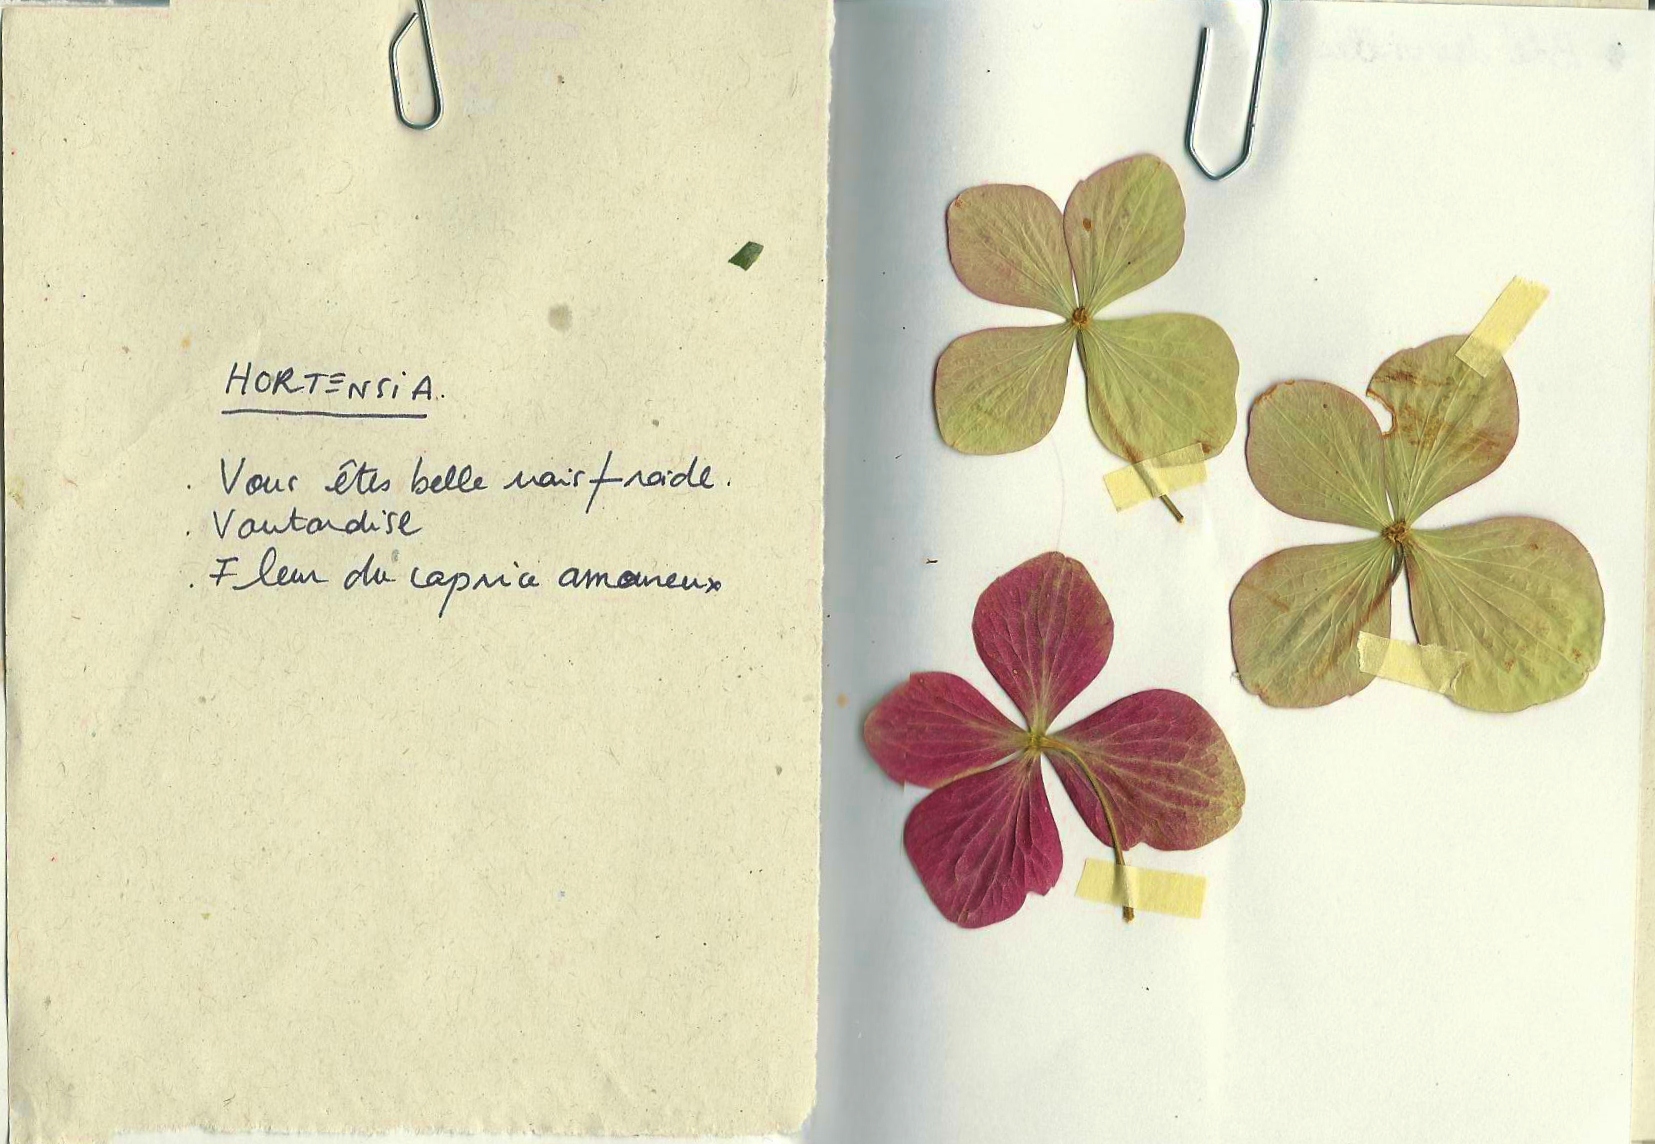 HORTENSIA.
. Vous êtes belle mais froide.
. Vantardise
. Fleur du caprice amoureux